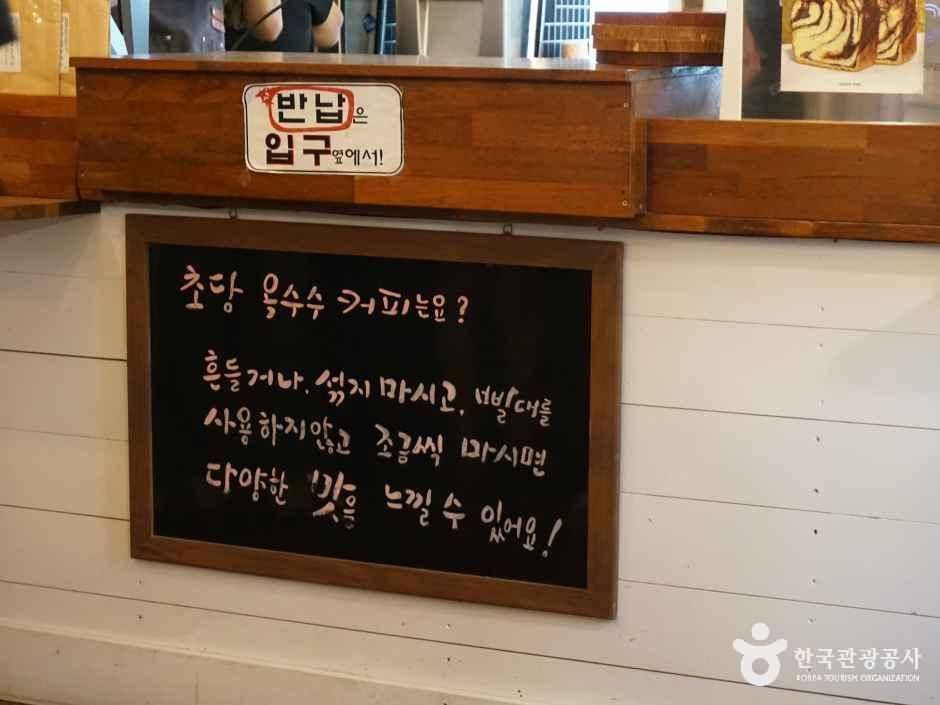 반납은
입구옆에서!
초당 옥수수 커피는요?
흔들거나, 섞지 마시고, 빨대를
사용하지않고 조금씩 마시면
다양한 맛을 느낄 수 있어요!
한국관광공사
KOREA TOURISM ORGANIZATION